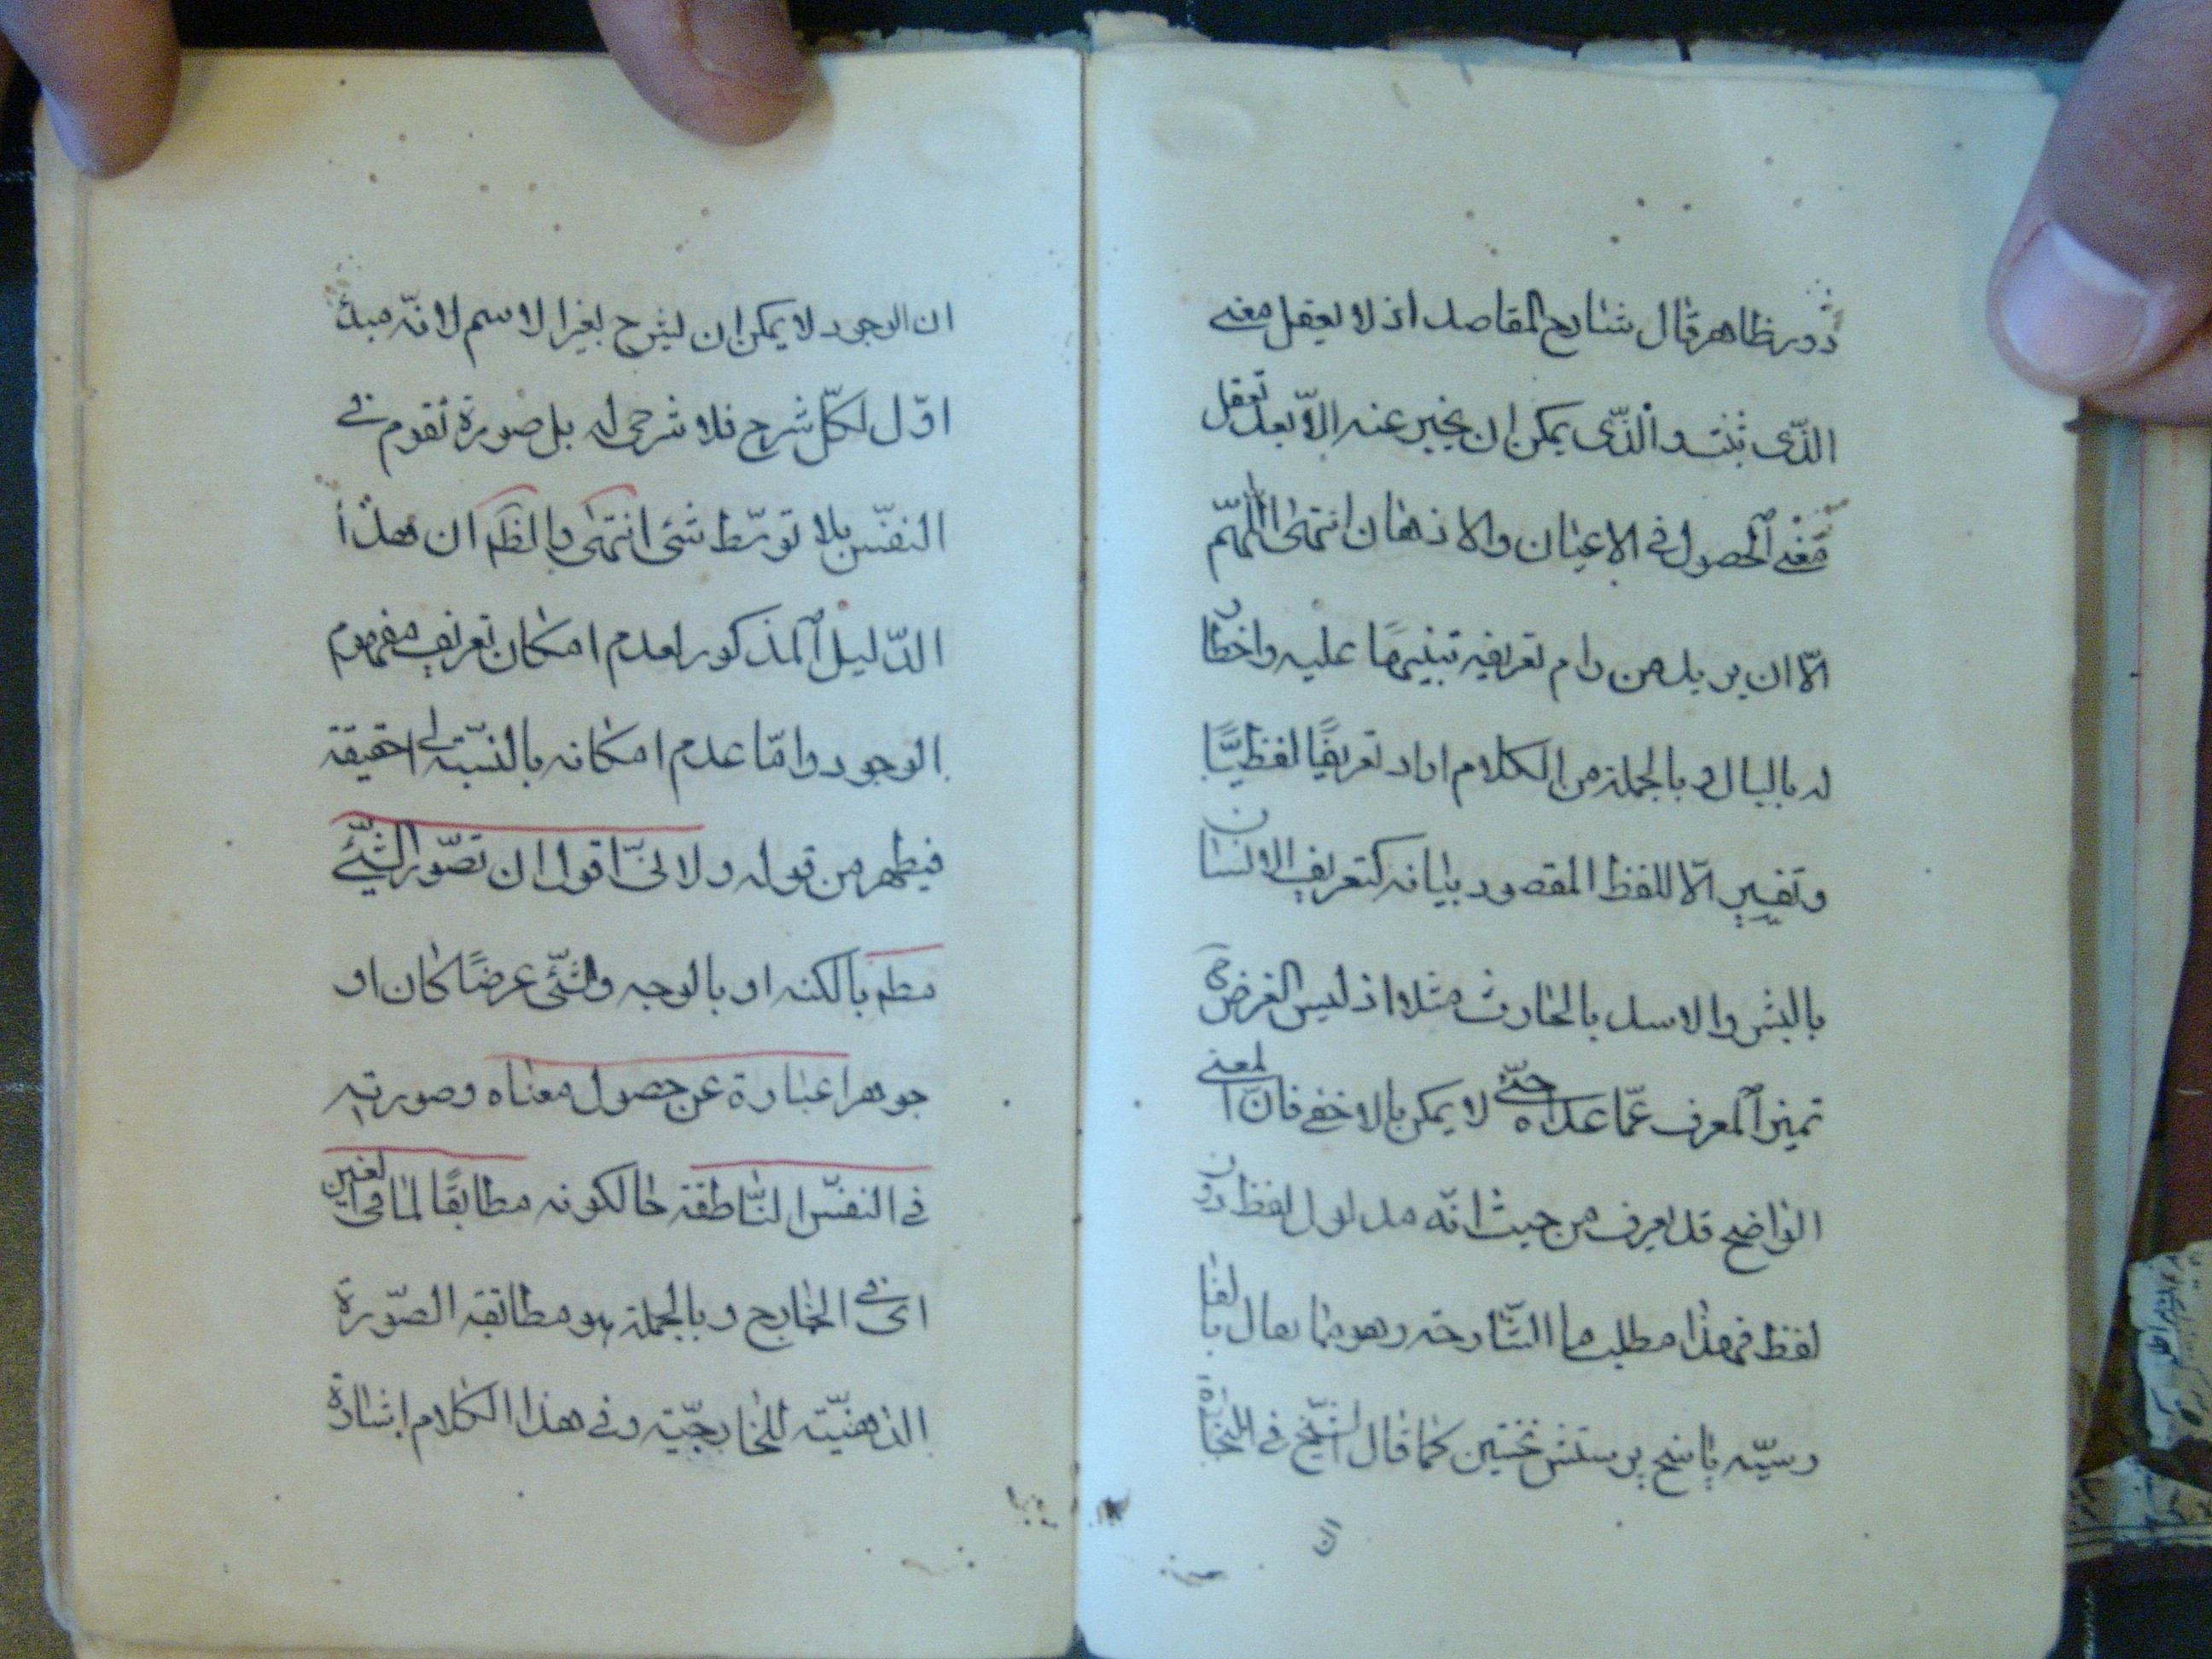 دور ظاهر قال شارح المقاصد اذ لا يعقل معنى
الذّى ثبت والذّى يمكن ان يخبر عنه الاّ بعد تعقل
معنى الحصول فى الاعيان والاذهان انتهى اللّهمّ
الاّ ان يريد من رام تعريفه تنبيهًا عليه واخطارا
له بالبال وبالجملة من الكلام اراد تعريفًا لفظيًّا
وتفسير الاّ للفظ المقصود بيانه كتعريف الانسان
بالبشر والاسد بالحارث مثلا اذ ليس الغرض ح
تميز المعرف عمّا عداه حتّى لا يمكن بالاخفى فانّ المعنى
الواضح قد يعرف من حيث انّه مدلول لفظ دون
لفظ فهذا مطلب ما الشّارحه وهو ما يقال بالفا
رسيّه پاسخ پرستش نختين كما قال الشّيخ فى النجاة
ان
ان الوجود لا يمكن ان يشرح بغير الاسم لانّه مبدأ
اوّل لكلّ شرح فلا شرح له بل صورة تقوم فى
النفس بلا توسّط شئ انتهى والظم ان هذا
الدّليل المذكور لعدم امكان تعريف مفهوم
الوجود وامّا عدم امكانه بالنسّبة الى حقيقة
فيظهر من قوله ولانّى اقول ان تصوّر الشّئ
مطم بالكنه او بالوجه والشّئ عرضًا كان او
جوهرا عبارة عن حصول معناه وصورته
فى النفس النّاطقة حالكونه مطابقًا لما فى العين
اى فى الخارج وبالجملة هو مطابقة الصّورة
الذهنيّة للخارجيّة وفى هذا الكلام اشارة